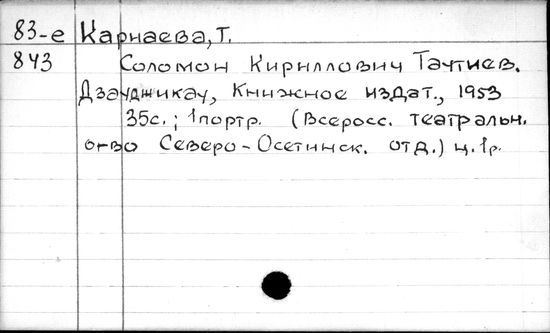 83-е Карнаева, Т.
843 Соломон Кириллович Таутиев.
Дзауджикау, Книжное издат., 1953
35с.; 1портр. (Всеросс. театральн.
о-во Северо-Осетинск. отд.) ц. 1р.